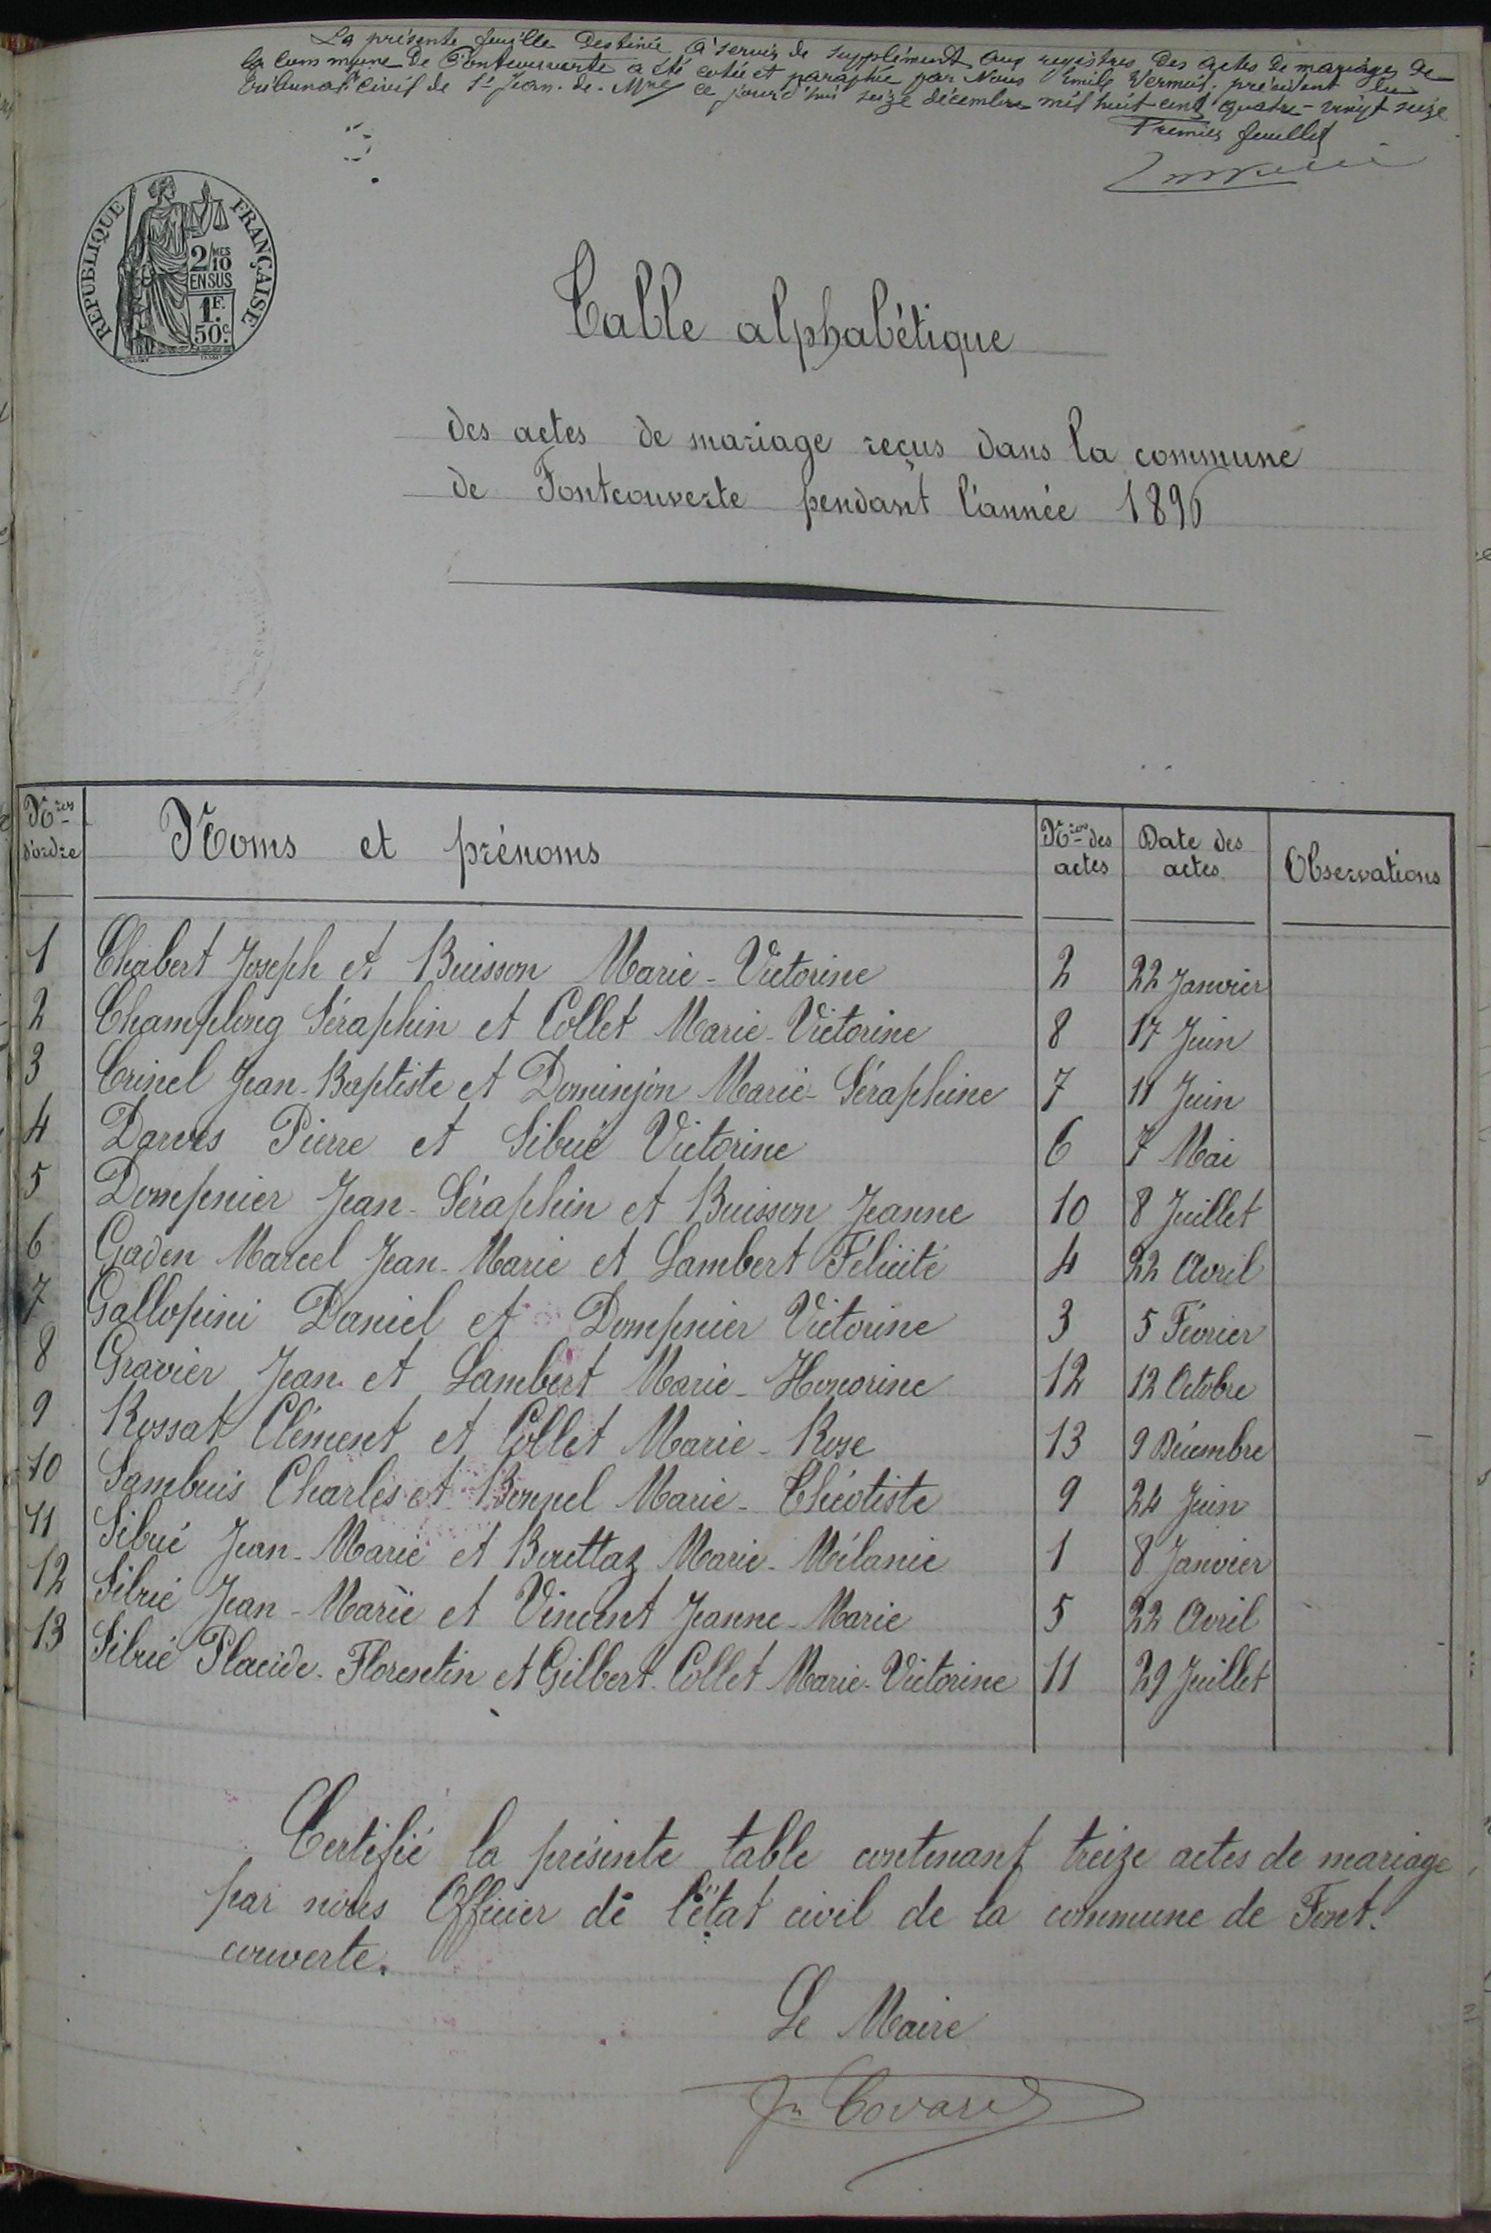 La présente feuille destinée à servir de supplément aux registres des actes de mariages de
la commune de Fontcouverte a été cotée et paraphée par Nous Emile Vermeil, président du
tribunal civil de St Jean-de-Mne ce jourd'hui seize décembre mil huit cent quatre-vingt seize
Premier feuillet
RÉPUBLIQUE FRANÇAISE
2/10MES
EN SUS
1F.
50c.
Table alphabétique
des actes de mariage reçus dans la commune
de Fontcouverte pendant l'année 1896
Nros d'ordre Noms et prénoms Nros des actes Date des actes Observations
1 Chabert Joseph et Buisson Marie-Victorine 2 22 Janvier
2 Champlong Séraphin et Collet Marie-Victorine 8 17 Juin
3 Crinel Jean-Baptiste et Dominjon Marie-Séraphine 7 11 Juin
4 Darves Pierre et Sibué Victorine 6 7 Mai
5 Dompnier Jean-Séraphin et Buisson Jeanne 10 8 Juillet
6 Gaden Marcel Jean-Marie et Lambert Félicité 4 22 Avril
7 Gallopini Daniel et Dompnier Victorine 3 5 Février
8 Gravier Jean et Lambert Marie-Honorine 12 12 Octobre
9 Rossat Clément et Collet Marie-Rose 13 9 Décembre
10 Sambuis Charles et Bonnel Marie-Théotiste 9 24 Juin
11 Sibué Jean-Marie et Bouttaz Marie-Mélanie 1 8 Janvier
12 Sibué Jean-Marie et Vincent Jeanne-Marie 5 22 Avril
13 Sibué Placide-Florentin et Gilbert-Collet Marie-Victorine 11 29 Juillet
Certifié la présente table contenant treize actes de mariage
par nous Officier de l'état civil de la commune de Font-
couverte.
Le Maire
Jn Covarel